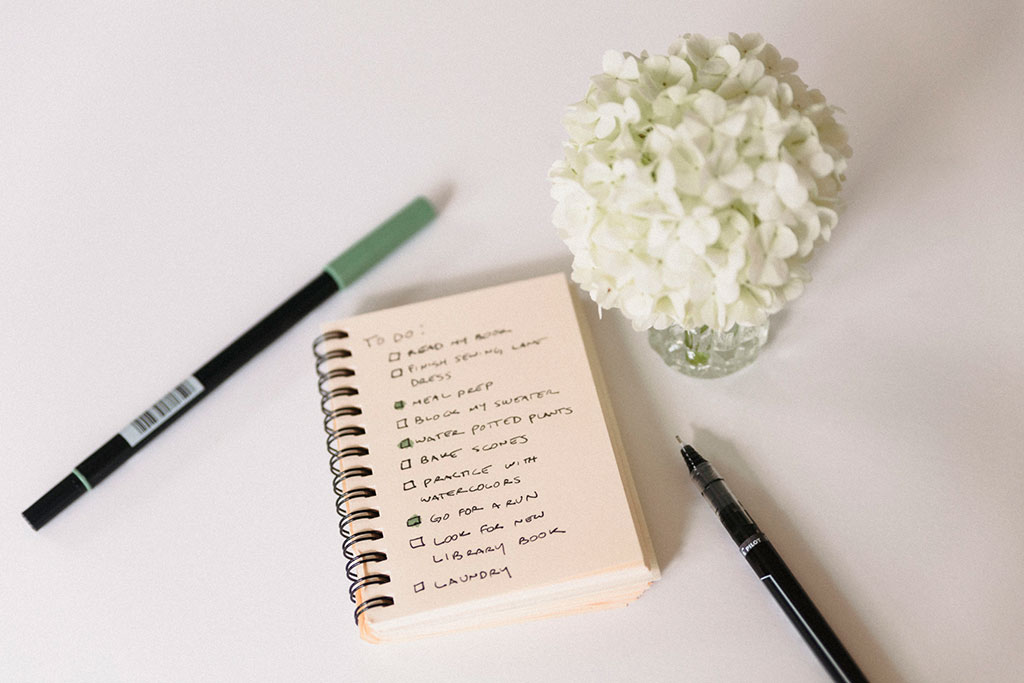 TO DO:
READ MY BOOK
FINISH SEWING LANE
DRESS
MEAL PREP
BLOCK MY SWEATER
WATER POTTED PLANTS
BAKE SCONES
PRACTICE WITH
WATERCOLORS
GO FOR A RUN
LOOK FOR NEW
LIBRARY BOOK
LAUNDRY
PILOT